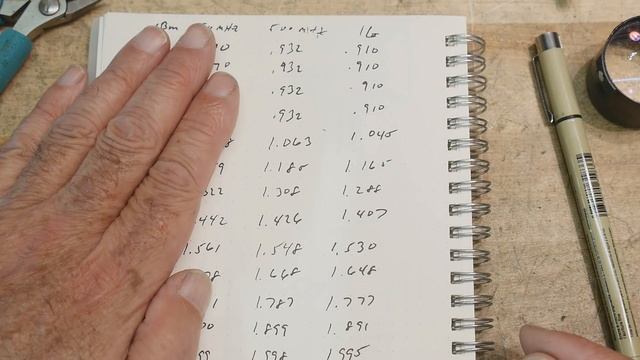 dBm MHz 500 MHz 1G
.932 .910
.932 .910
.932 .910
.932 .910
1.063 1.045
1.180 1.165
1.308 1.288
442 1.426 1.407
.561 1.548 1.530
1.668 1.648
1 1.787 1.777
1.899 1.891
99 1.998 1.995